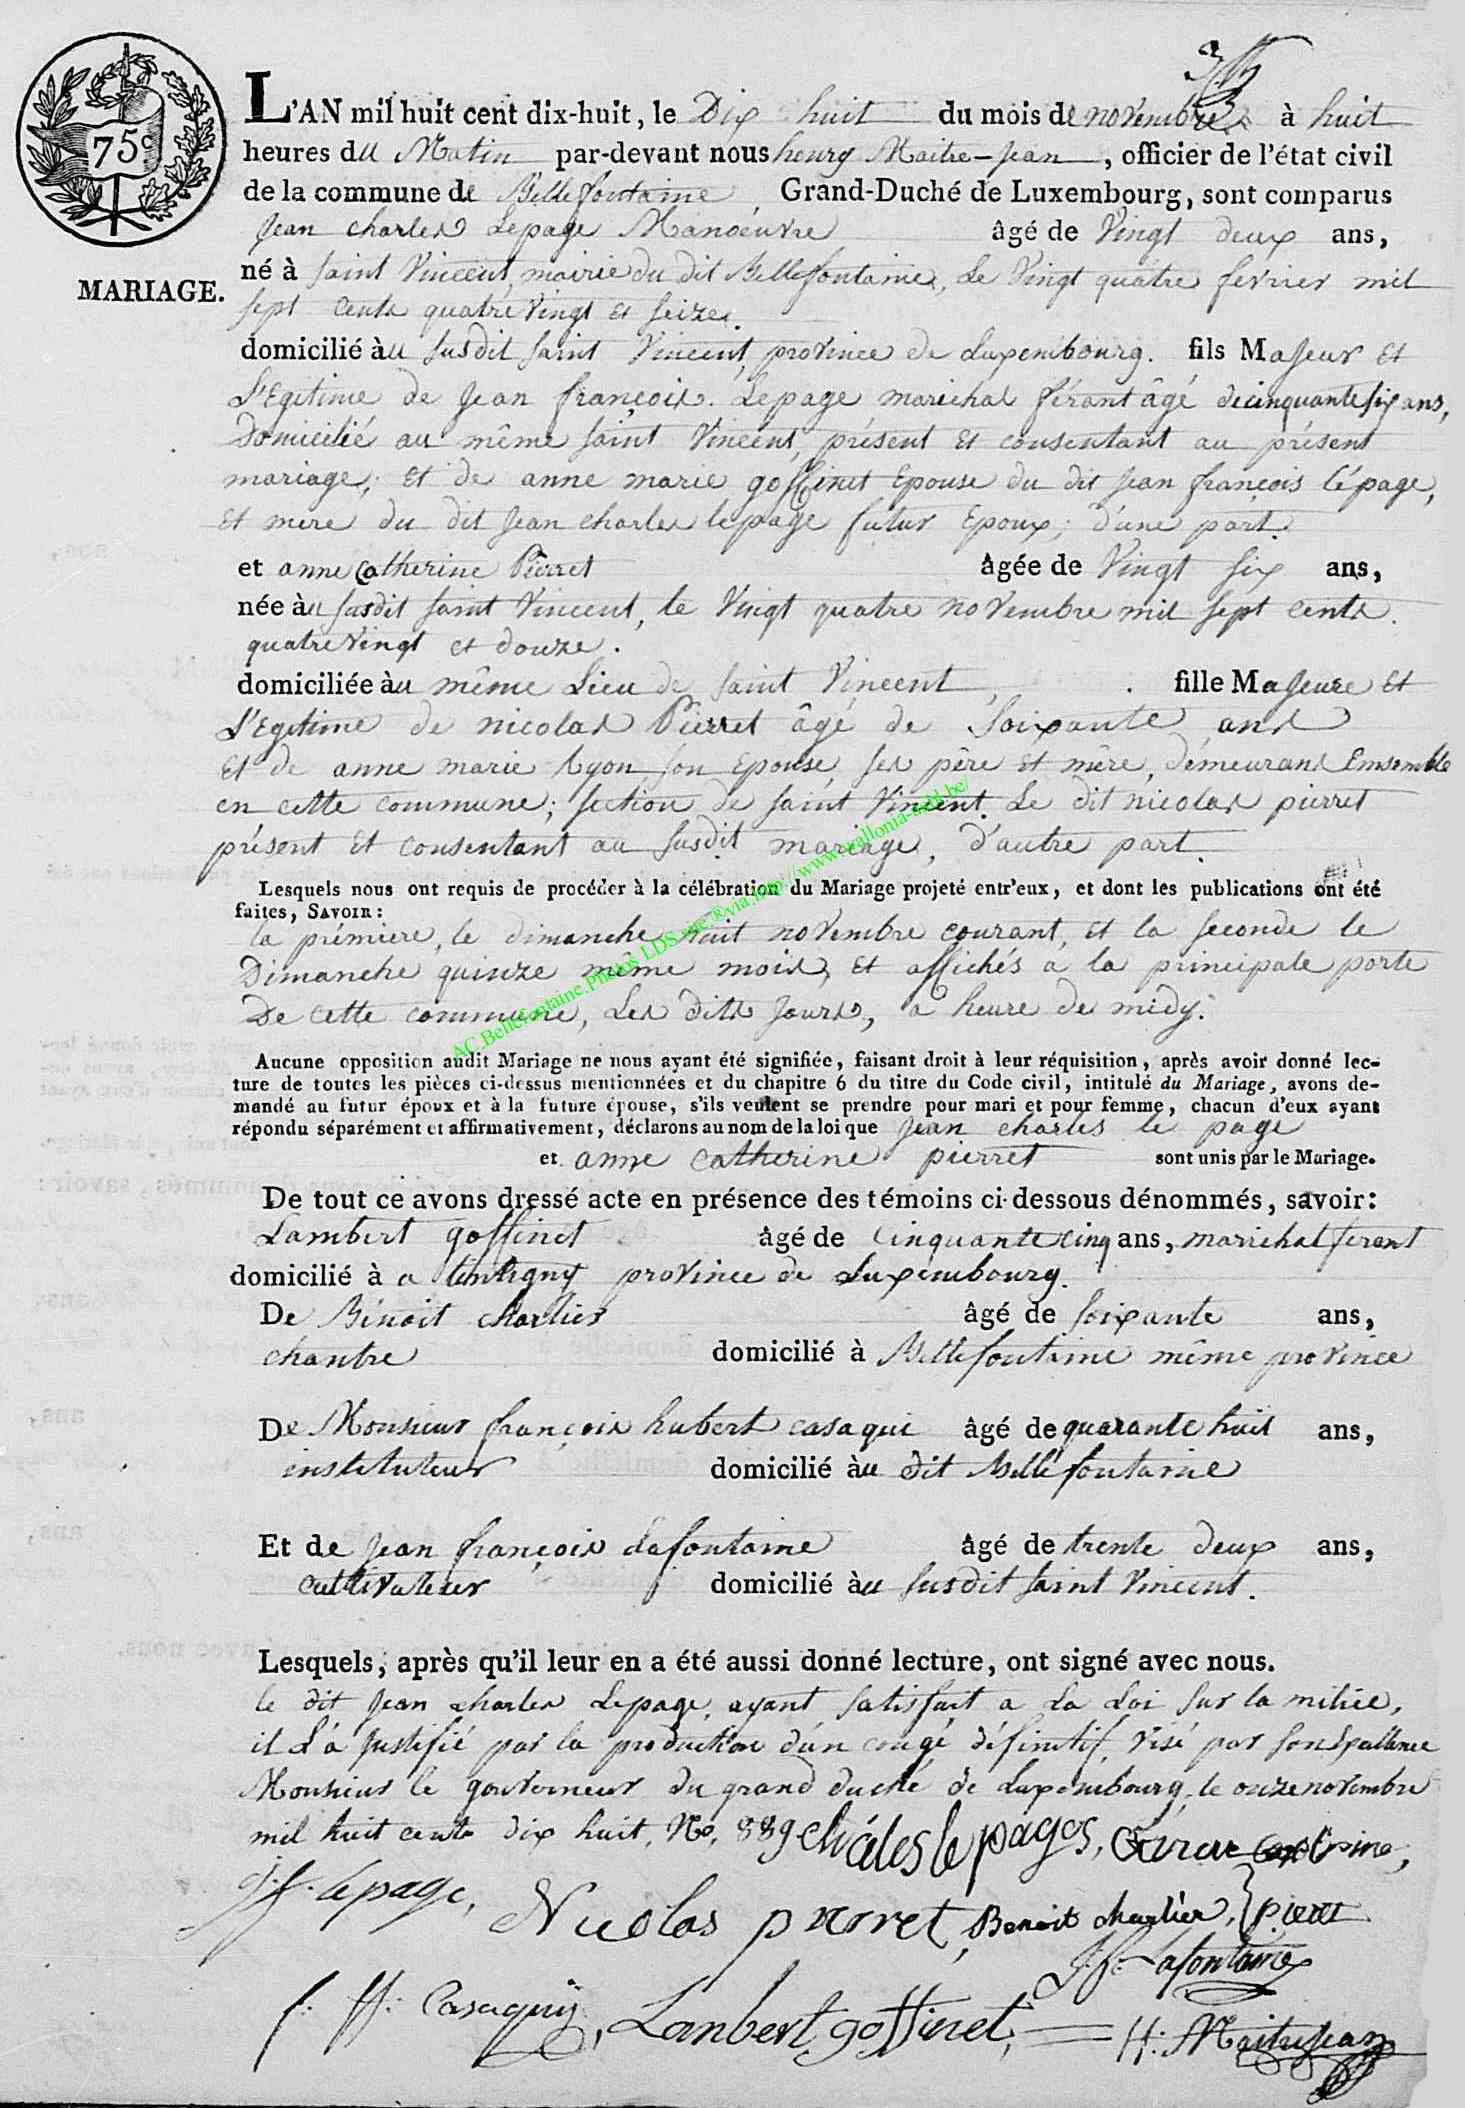 75c
L'AN mil huit cent dix-huit, le Dix huit du mois de novembre à huit
heures du Matin par-devant nous henry Maitre-Jean, officier de l'état civil
de la commune de Bellefontaine Grand-Duché de Luxembourg, sont comparus
Jean charles Lepage Manoeuvre âgé de Vingt deux ans,
MARIAGE.
né à saint Vincent, mairie du dit Bellefontaine, Le Vingt quatre fevrier mil
sept cents quatre Vingt et seize.
domicilié àu susdit saint Vincent, province de Luxembourg. fils Majeur et
L'Egitime de Jean françois Lepage marichal férant âgé de cinquante six ans,
Domicilié au même saint Vincent, présent et consentant au présent
mariage; et de anne marie goffinet Epouse du dit Jean françois lépage,
et mere du dit Jean charles lepage futur Epoux; d'une part.
et anne Catherine Pierret âgée de Vingt six ans,
née àu susdit saint Vincent, le Vingt quatre novembre mil sept cents
quatre Vingt et douze.
domiciliée àu même Lieu de saint Vincent, fille Majeure et
L'Egitime de nicolas Pierret âgé de soixante ans
et de anne marie Lyon, son Epouse, ses père et mère, démeurans Emsemble
en cette commune; section de saint Vincent. Le dit nicolas pierret
présent et consentant au susdit mariage, d'autre part.
AC.Bellefontaine.Photos LDS sur ®via,http://www.wallonia-asbl.be/
Lesquels nous ont requis de procéder à la célébration du Mariage projeté entr'eux, et dont les publications ont été
faites, SAVOIR:
la prémiere, le dimanche huit novembre courant, et la seconde le
Dimanche quinze même mois, et affichés a la principale porte
De cette commune, Les dits Jours, a heure de midy.
Aucune opposition audit Mariage ne nous ayant été signifiée, faisant droit à leur réquisition, après avoir donné lec-
ture de toutes les pièces ci-dessus mentionnées et du chapitre 6 du titre du Code civil, intitulé du Mariage, avons de-
mandé au futur époux et à la future épouse, s'ils veulent se prendre pour mari et pour femme, chacun d'eux ayant
répondu séparément et affirmativement, déclarons au nom de la loi que Jean charles le page
et anne catherine pierret sont unis par le Mariage.
De tout ce avons dressé acte en présence des témoins ci-dessous dénommés, savoir:
Lambert goffinet âgé de cinquante cinq ans, marichal ferant
domicilié à a tintigny province de Luxembourg.
De Bénoit charlier âgé de soixante ans,
chantre domicilié à Bellefontaine même province
De Monsieur françois hubert casaqui âgé de quarante huit ans,
instituteur domicilié àu dit Bellefontaine
Et de Jean françois Lafontaine âgé de trente deux ans,
cultivateur domicilié àu susdit saint Vincent.
Lesquels, après qu'il leur en a été aussi donné lecture, ont signé avec nous.
le dit Jean charles Lepage, ayant satisfait a La Loi sur la milice,
il L'a Justifié par la production d'un congé définitif, visé par son Exallence
Monsieur le gouverneur du grand duché de Luxembourg, le onze novembre
mil huit cents dix huit, No, 889 chales le pages,
J. f. Lepage, Nicolas pierret, Benoit charlier, pierret
J. f. Lafontaine
f. H: Casaquy, Lambert goffinet, H: Maitrejean